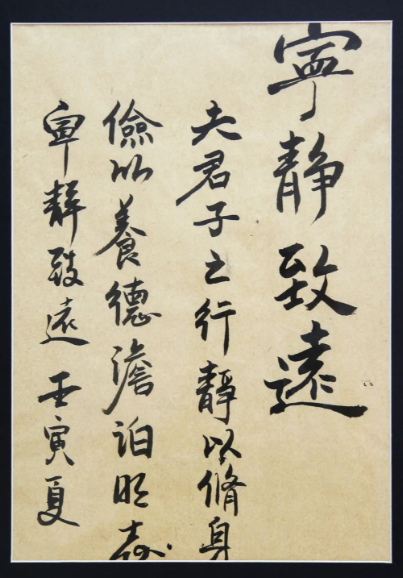 寧静致遠
夫君子之行靜以脩身
儉以養德澹泊明志
寧靜致遠 壬寅夏